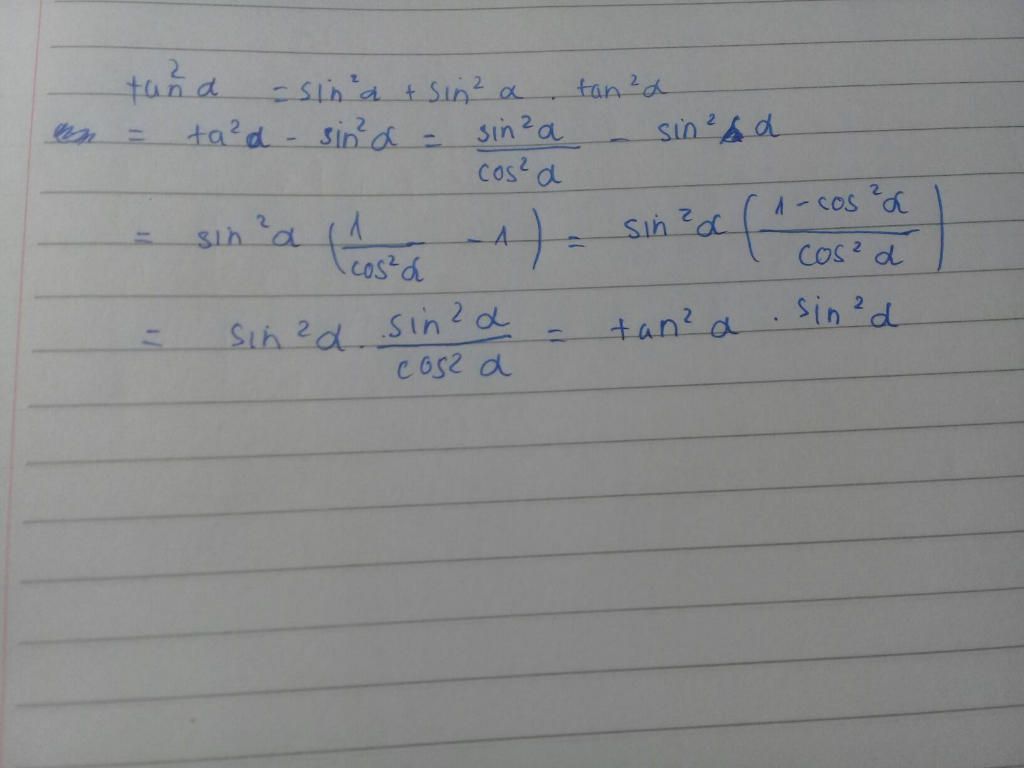 tan²α = sin²α + sin²α · tan²α
= ta²α - sin²α = sin²α/cos²α - sin²α
= sin²α (1/cos²α - 1) = sin²α (1-cos²α/cos²α)
= sin²α · sin²α/cos²α = tan²α · sin²α